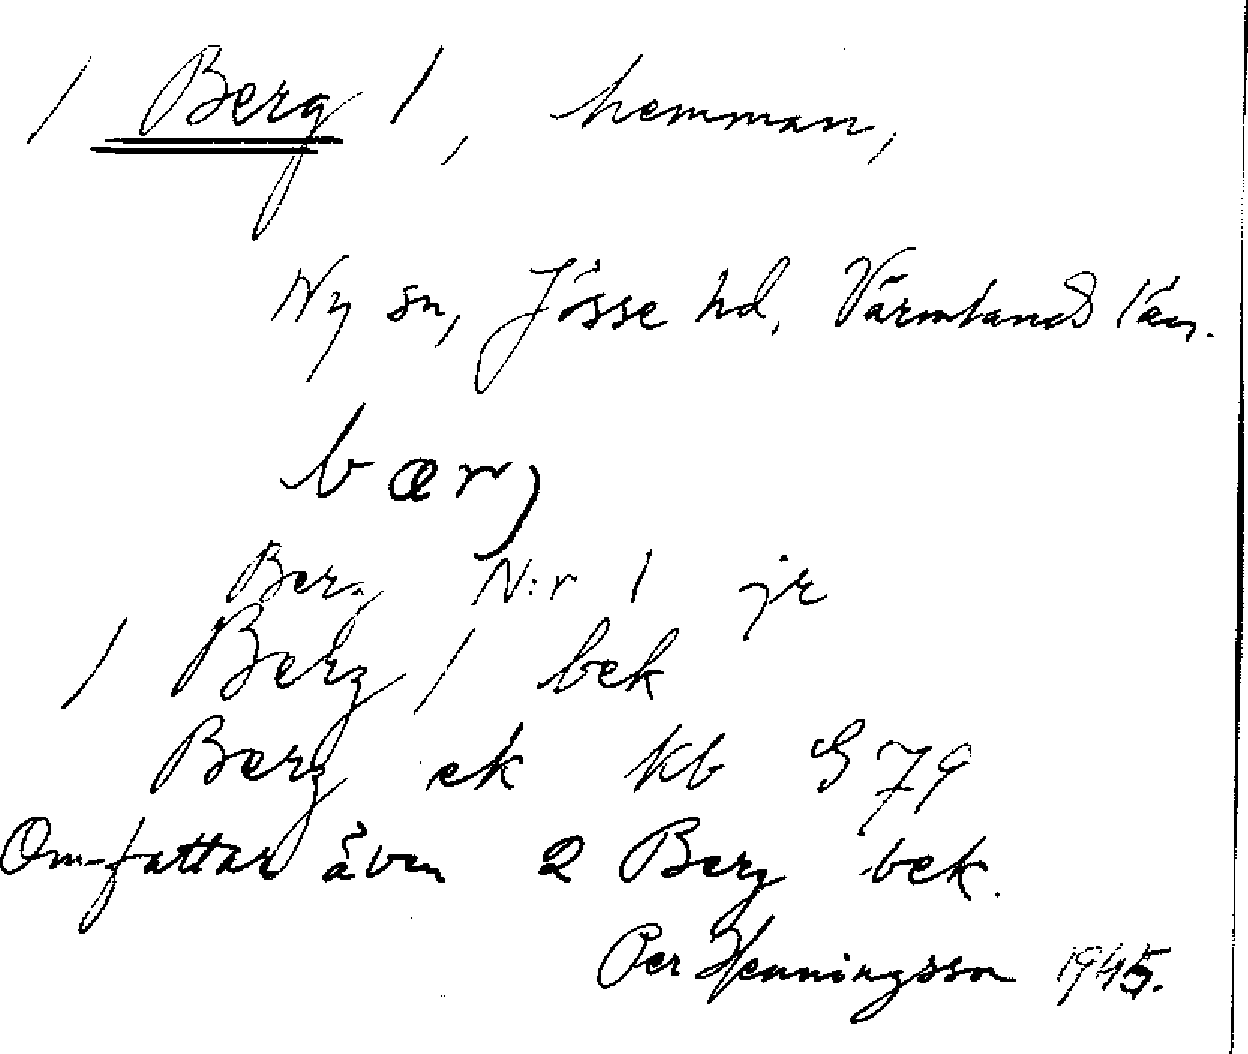 1 Berg 1, hemman,
Ny sn, Jösse hd, Värmlands län.
bærj
Berg N:r 1 jr
1 Berg 1 bek
Berg ek kb S 79
Omfattar även 2 Berg bek.
Per Henningsson 1945.